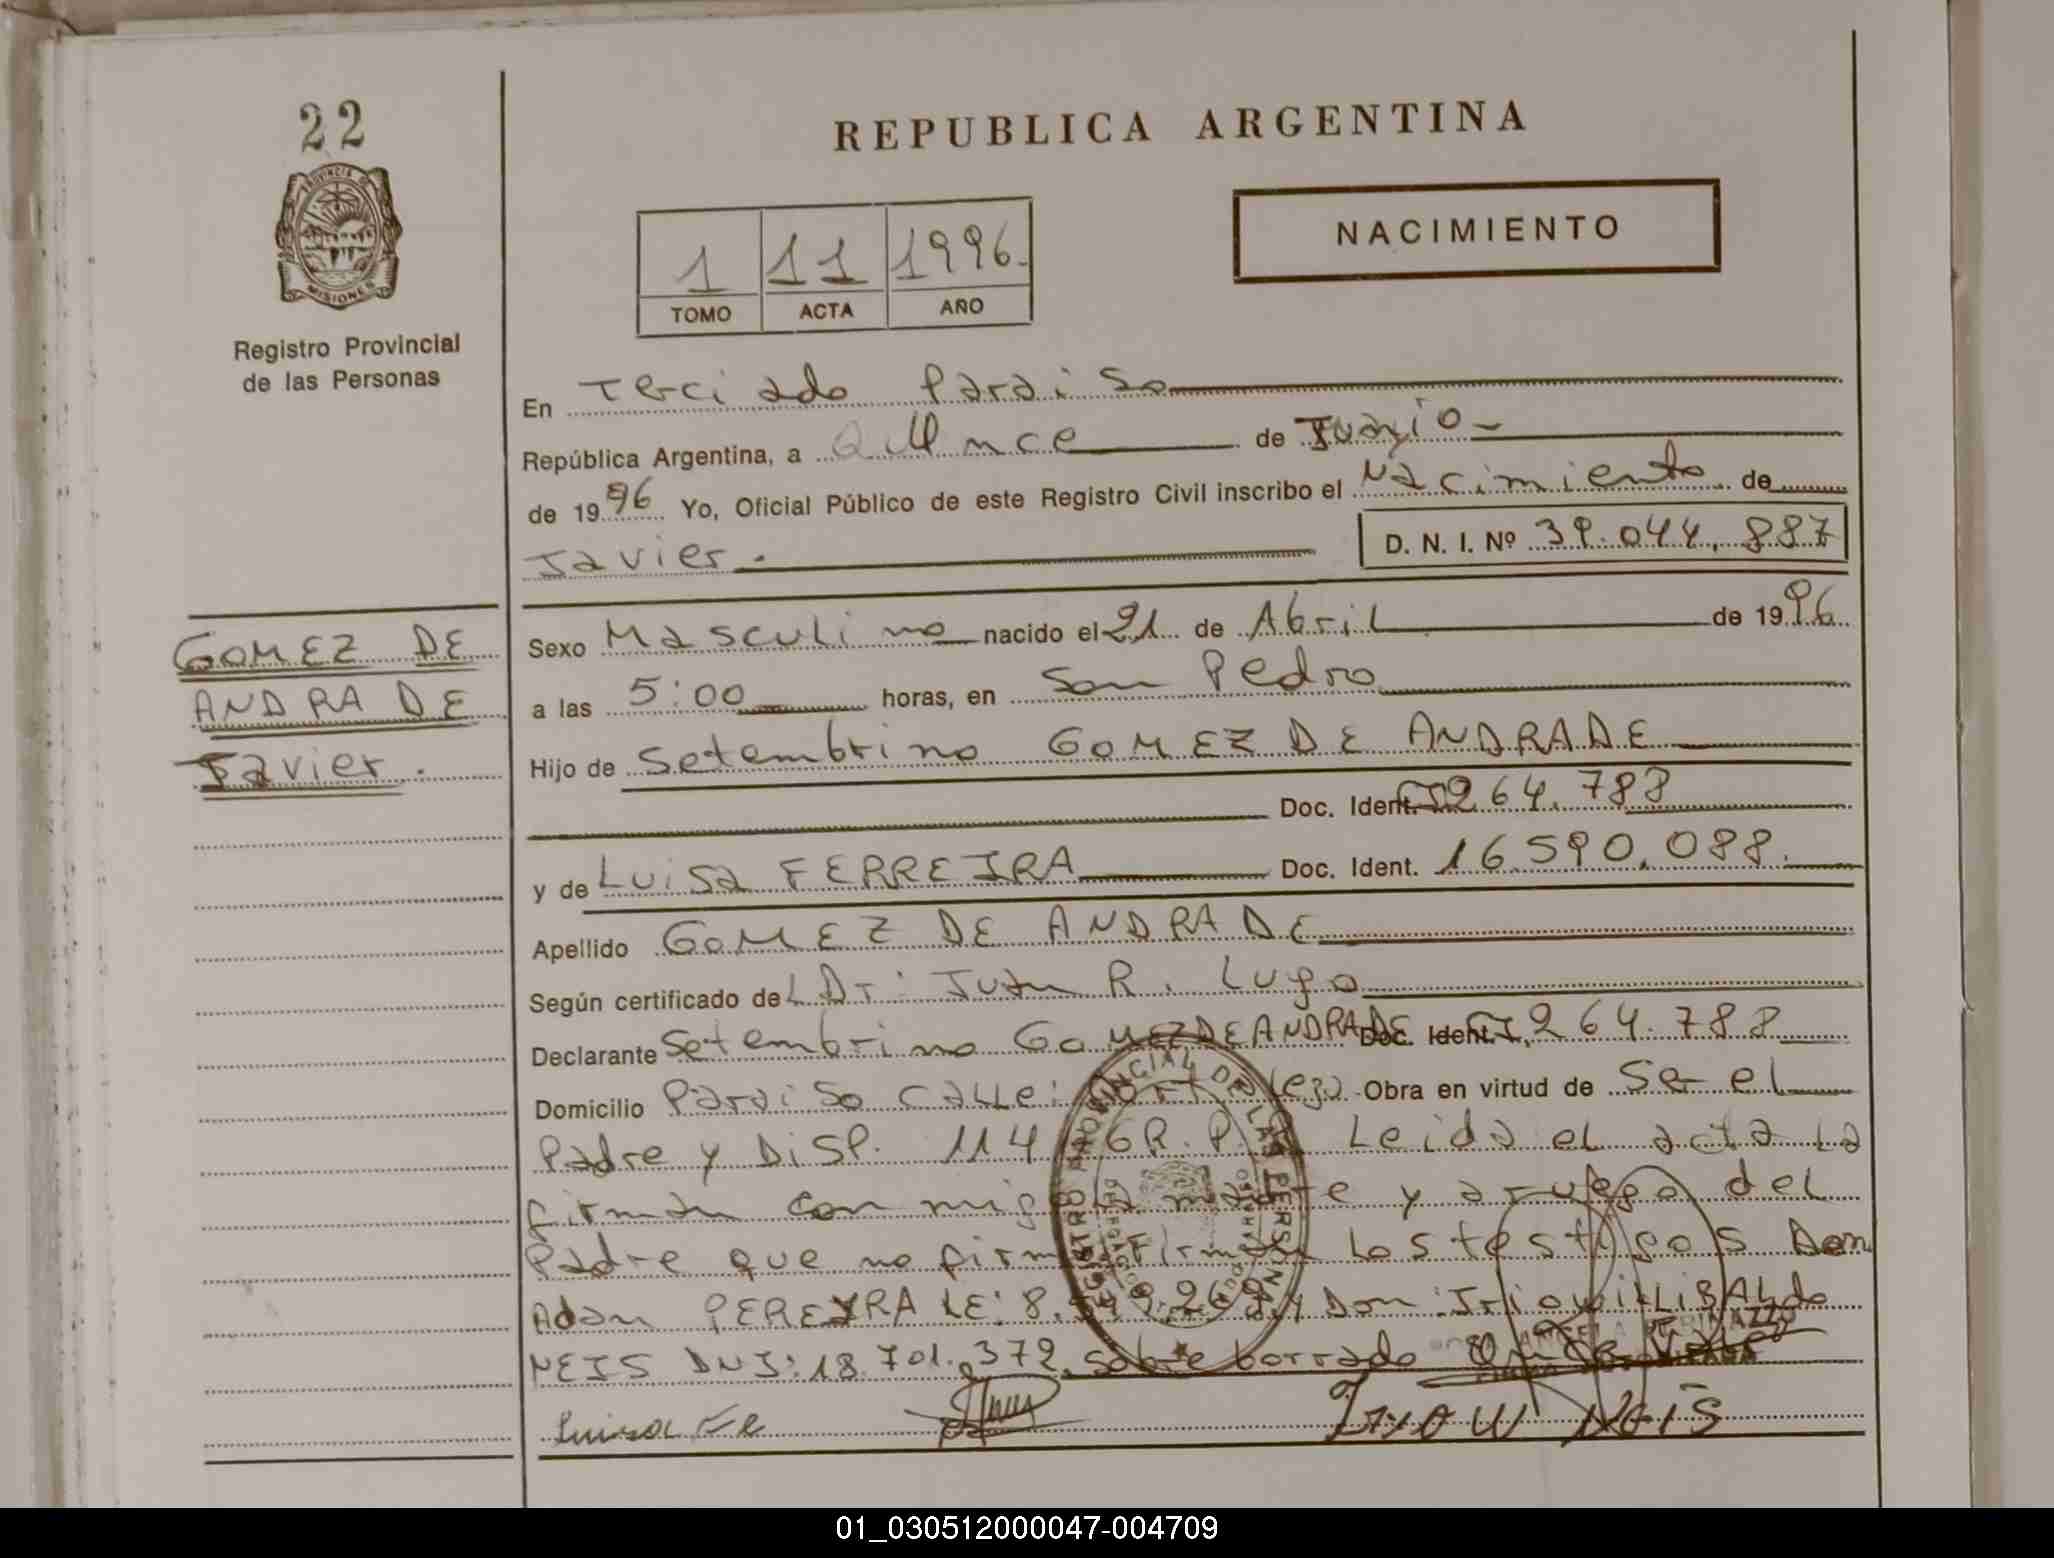 22
REPUBLICA ARGENTINA
PROVINCIA DE
MISIONES
Registro Provincial
de las Personas
1 11 1996.
TOMO ACTA AÑO
NACIMIENTO
En Terciado Paraiso
República Argentina, a Quince de
de 1996 Yo, Oficial Público de este Registro Civil inscribo el Nacimiento de
Javier.
D. N. I. Nº 39.044.887
GOMEZ DE
ANDRADE
Javier.
Sexo Masculino nacido el 21 de Abril de 1996
a las 5:00 horas, en San Pedro
Hijo de Setembrino GOMEZ DE ANDRADE
Doc. Ident. 264.788
y de Luisa FERREIRA Doc. Ident. 16.590.088.
Apellido GOMEZ DE ANDRADE
Según certificado del Dr: Juan R. Lugo
Declarante Setembrino GOMEZ DE ANDRADE Doc. Ident. 264.788
Domicilio Paraiso Calle: Obra en virtud de Ser el
Padre y Disp. 114 GR.P. Leida el acta La
firman con migo la madre y a ruego del
Padre que no firma Firman Los testigos Don
Adan PEREYRA LE: 8. y Don: Iriow iLLiBALdo
NEIS DNI: 18.701.372. sobre borrado Vale
REGISTRO PROVINCIAL DE LAS PERSONAS
Luisa Fe
Iryow Neis
01_030512000047-004709